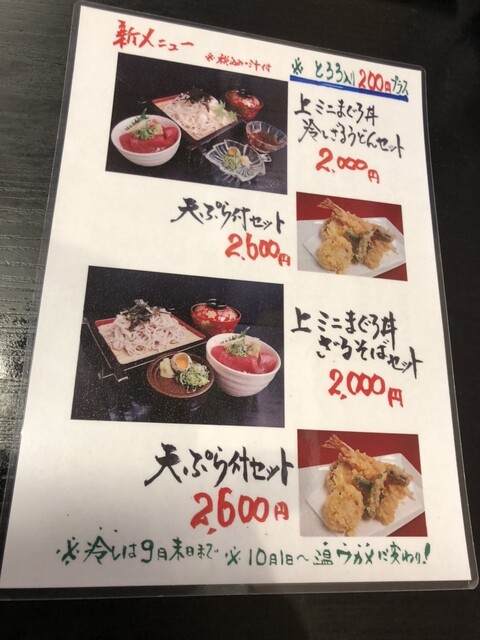 新メニュー
※ とろろ入り 200円プラス
上ミニまぐろ丼
冷しざるうどんセット
2,000円
天ぷら付セット
2,600円
上ミニまぐろ丼
ざるそばセット
2,000円
天ぷら付セット
2,600円
※冷しは9月末日まで ※10月1日～温ワカメに変わり!